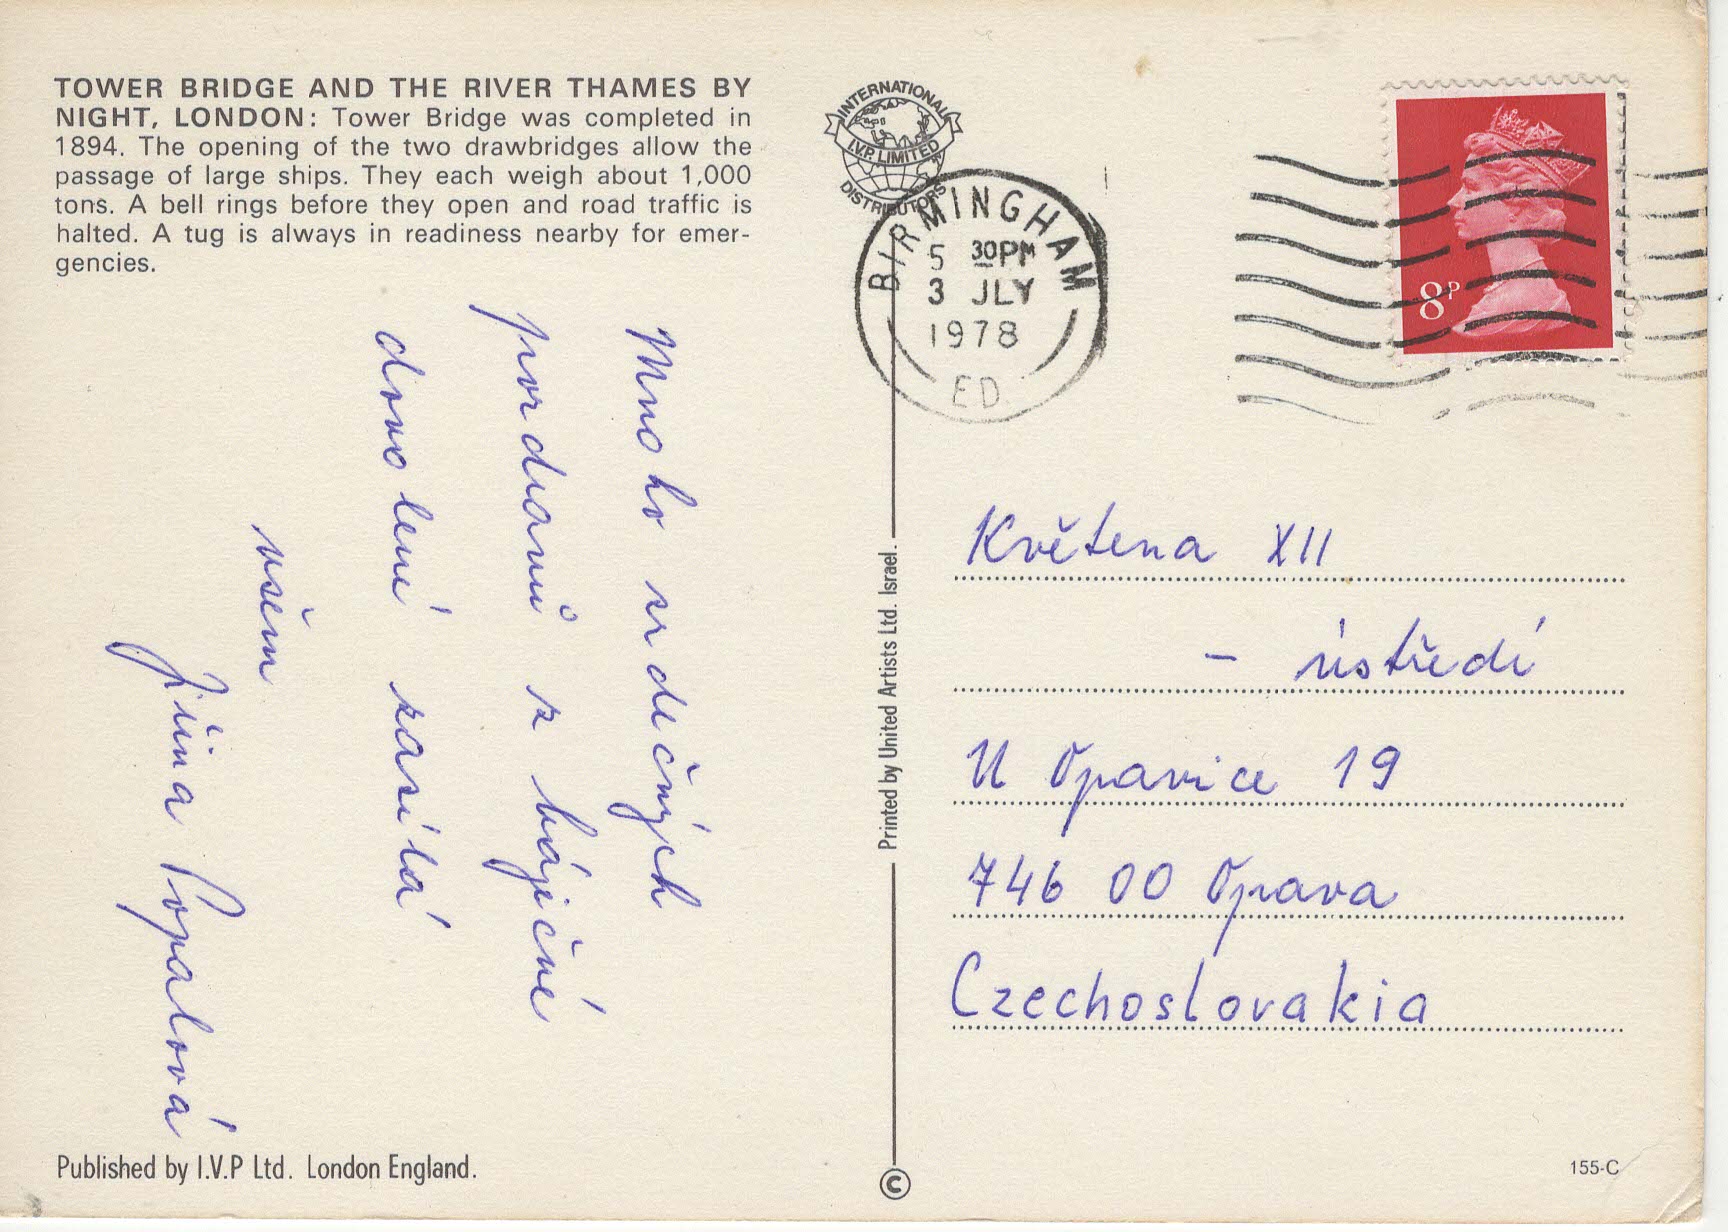 TOWER BRIDGE AND THE RIVER THAMES BY
NIGHT, LONDON: Tower Bridge was completed in
1894. The opening of the two drawbridges allow the
passage of large ships. They each weigh about 1,000
tons. A bell rings before they open and road traffic is
halted. A tug is always in readiness nearby for emer-
gencies.
Mnoho srdečných
pozdravů z báječné
dovolené zasílá
všem
Jiřina Popalová
Published by I.V.P Ltd. London England.
INTERNATIONAL
I.V.P. LIMITED
DISTRIBUTORS
BIRMINGHAM
5 30PM
3 JLY
1978
ED
8P
Printed by United Artists Ltd. Israel.
©
Květena XII
– ústředí
U Opavice 19
746 00 Opava
Czechoslovakia
155-C